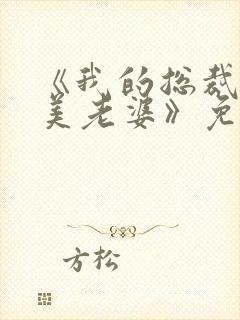 《我的总裁
美老婆》免
方松